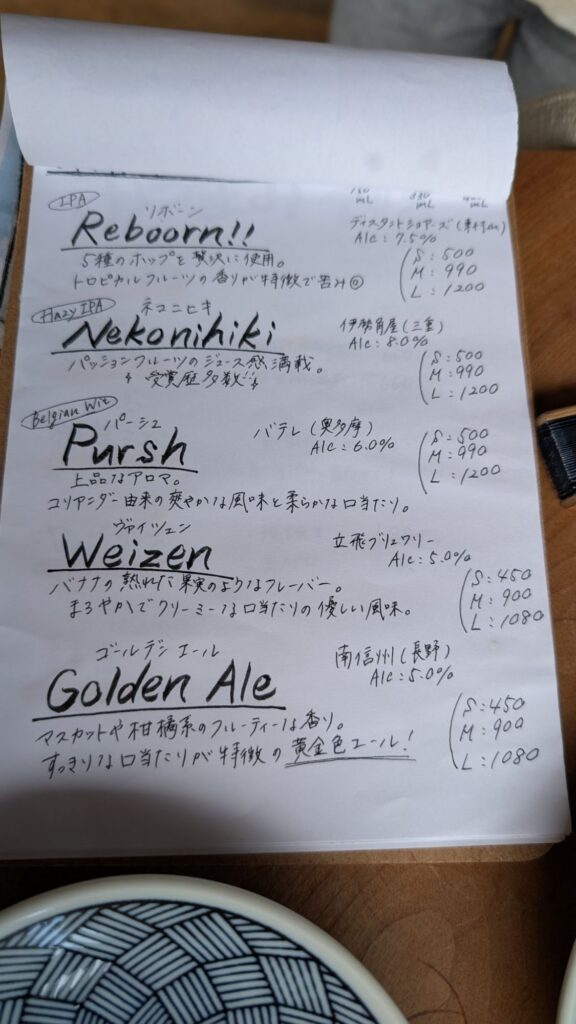 IPA
mL mL mL
リボーン
Reboorn!!
ディスタントショアーズ(東村山)
Alc : 7.5%
5種のホップを贅沢に使用。
トロピカルフルーツの香りが特徴で苦み◎
S : 500
M : 990
L : 1200
Hazy IPA
ネコニヒキ
Nekonihiki
伊勢角屋(三重)
Alc : 8.0%
パッションフルーツのジュース感満載。
受賞歴多数!!
S : 500
M : 990
L : 1200
Belgian Wit
パーシュ
Pursh
バテレ(奥多摩)
Alc : 6.0%
上品なアロマ。
コリアンダー由来の爽やかな風味と柔らかな口当たり。
S : 500
M : 990
L : 1200
ヴァイツェン
Weizen
立飛ブリュワリー
Alc : 5.0%
バナナの熟れた果実のようなフレーバー。
まろやかでクリーミーな口当たりの優しい風味。
S : 450
M : 900
L : 1080
ゴールデンエール
Golden Ale
南信州(長野)
Alc : 5.0%
マスカットや柑橘系のフルーティーな香り。
すっきりな口当たりが特徴の黄金色エール!
S : 450
M : 900
L : 1080